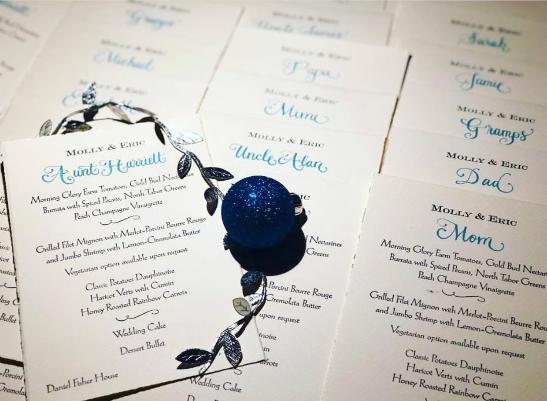 MOLLY & ERIC
Michael
MOLLY & ERIC
Aunt Harriett
Morning Glory Farm Tomatoes, Gold Bud
Burrata with Spiced Pecans, North Tabor Greens
Peach Champagne Vinaigrette
Grilled Filet Mignon with Merlot-Porcini Beurre Rouge
and Jumbo Shrimp with Lemon-Gremolata Butter
Vegetarian option available upon request
Classic Potatoes Dauphinoise
Haricot Verts with Cumin
Honey Roasted Rainbow Carrots
Wedding Cake
Dessert Buffet
Daniel Fisher House
Uncle James
MOLLY & ERIC
Papa
MOLLY & ERIC
Mimi
MOLLY & ERIC
Uncle Alan
Nectarines
Greens
Beurre Rouge
Butter
upon request
Wedding Cake
Sarah
MOLLY & ERIC
Jamie
MOLLY & ERIC
Gramps
MOLLY & ERIC
Dad
MOLLY & ERIC
Mom
Morning Glory Farm Tomatoes, Gold Bud
Burrata with Spiced Pecans, North Tabor
Peach Champagne Vinaigrette
Grilled Filet Mignon with Merlot-Porcini
and Jumbo Shrimp with Lemon-Gremolata
Vegetarian option available upon
Classic Potatoes Dauphinoise
Haricot Verts with Cumin
Honey Roasted Rainbow Carrots